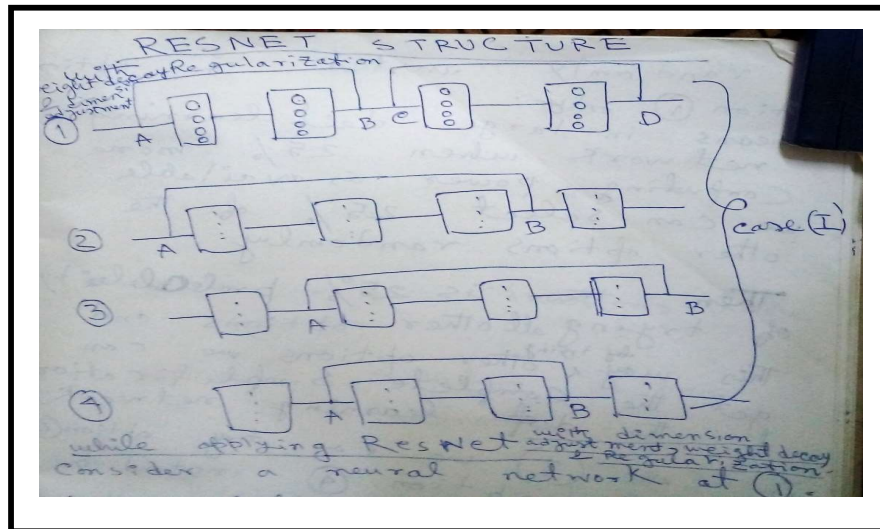 RESNET STRUCTURE
with
eight decay Regularization
& dimensi
justment
①
A
B
C
D
②
A
B
③
A
B
④
A
B
case (I)
while applying ResNet with dimension
adjustment, weight decay
& Regularization.
Consider a neural network at ①.